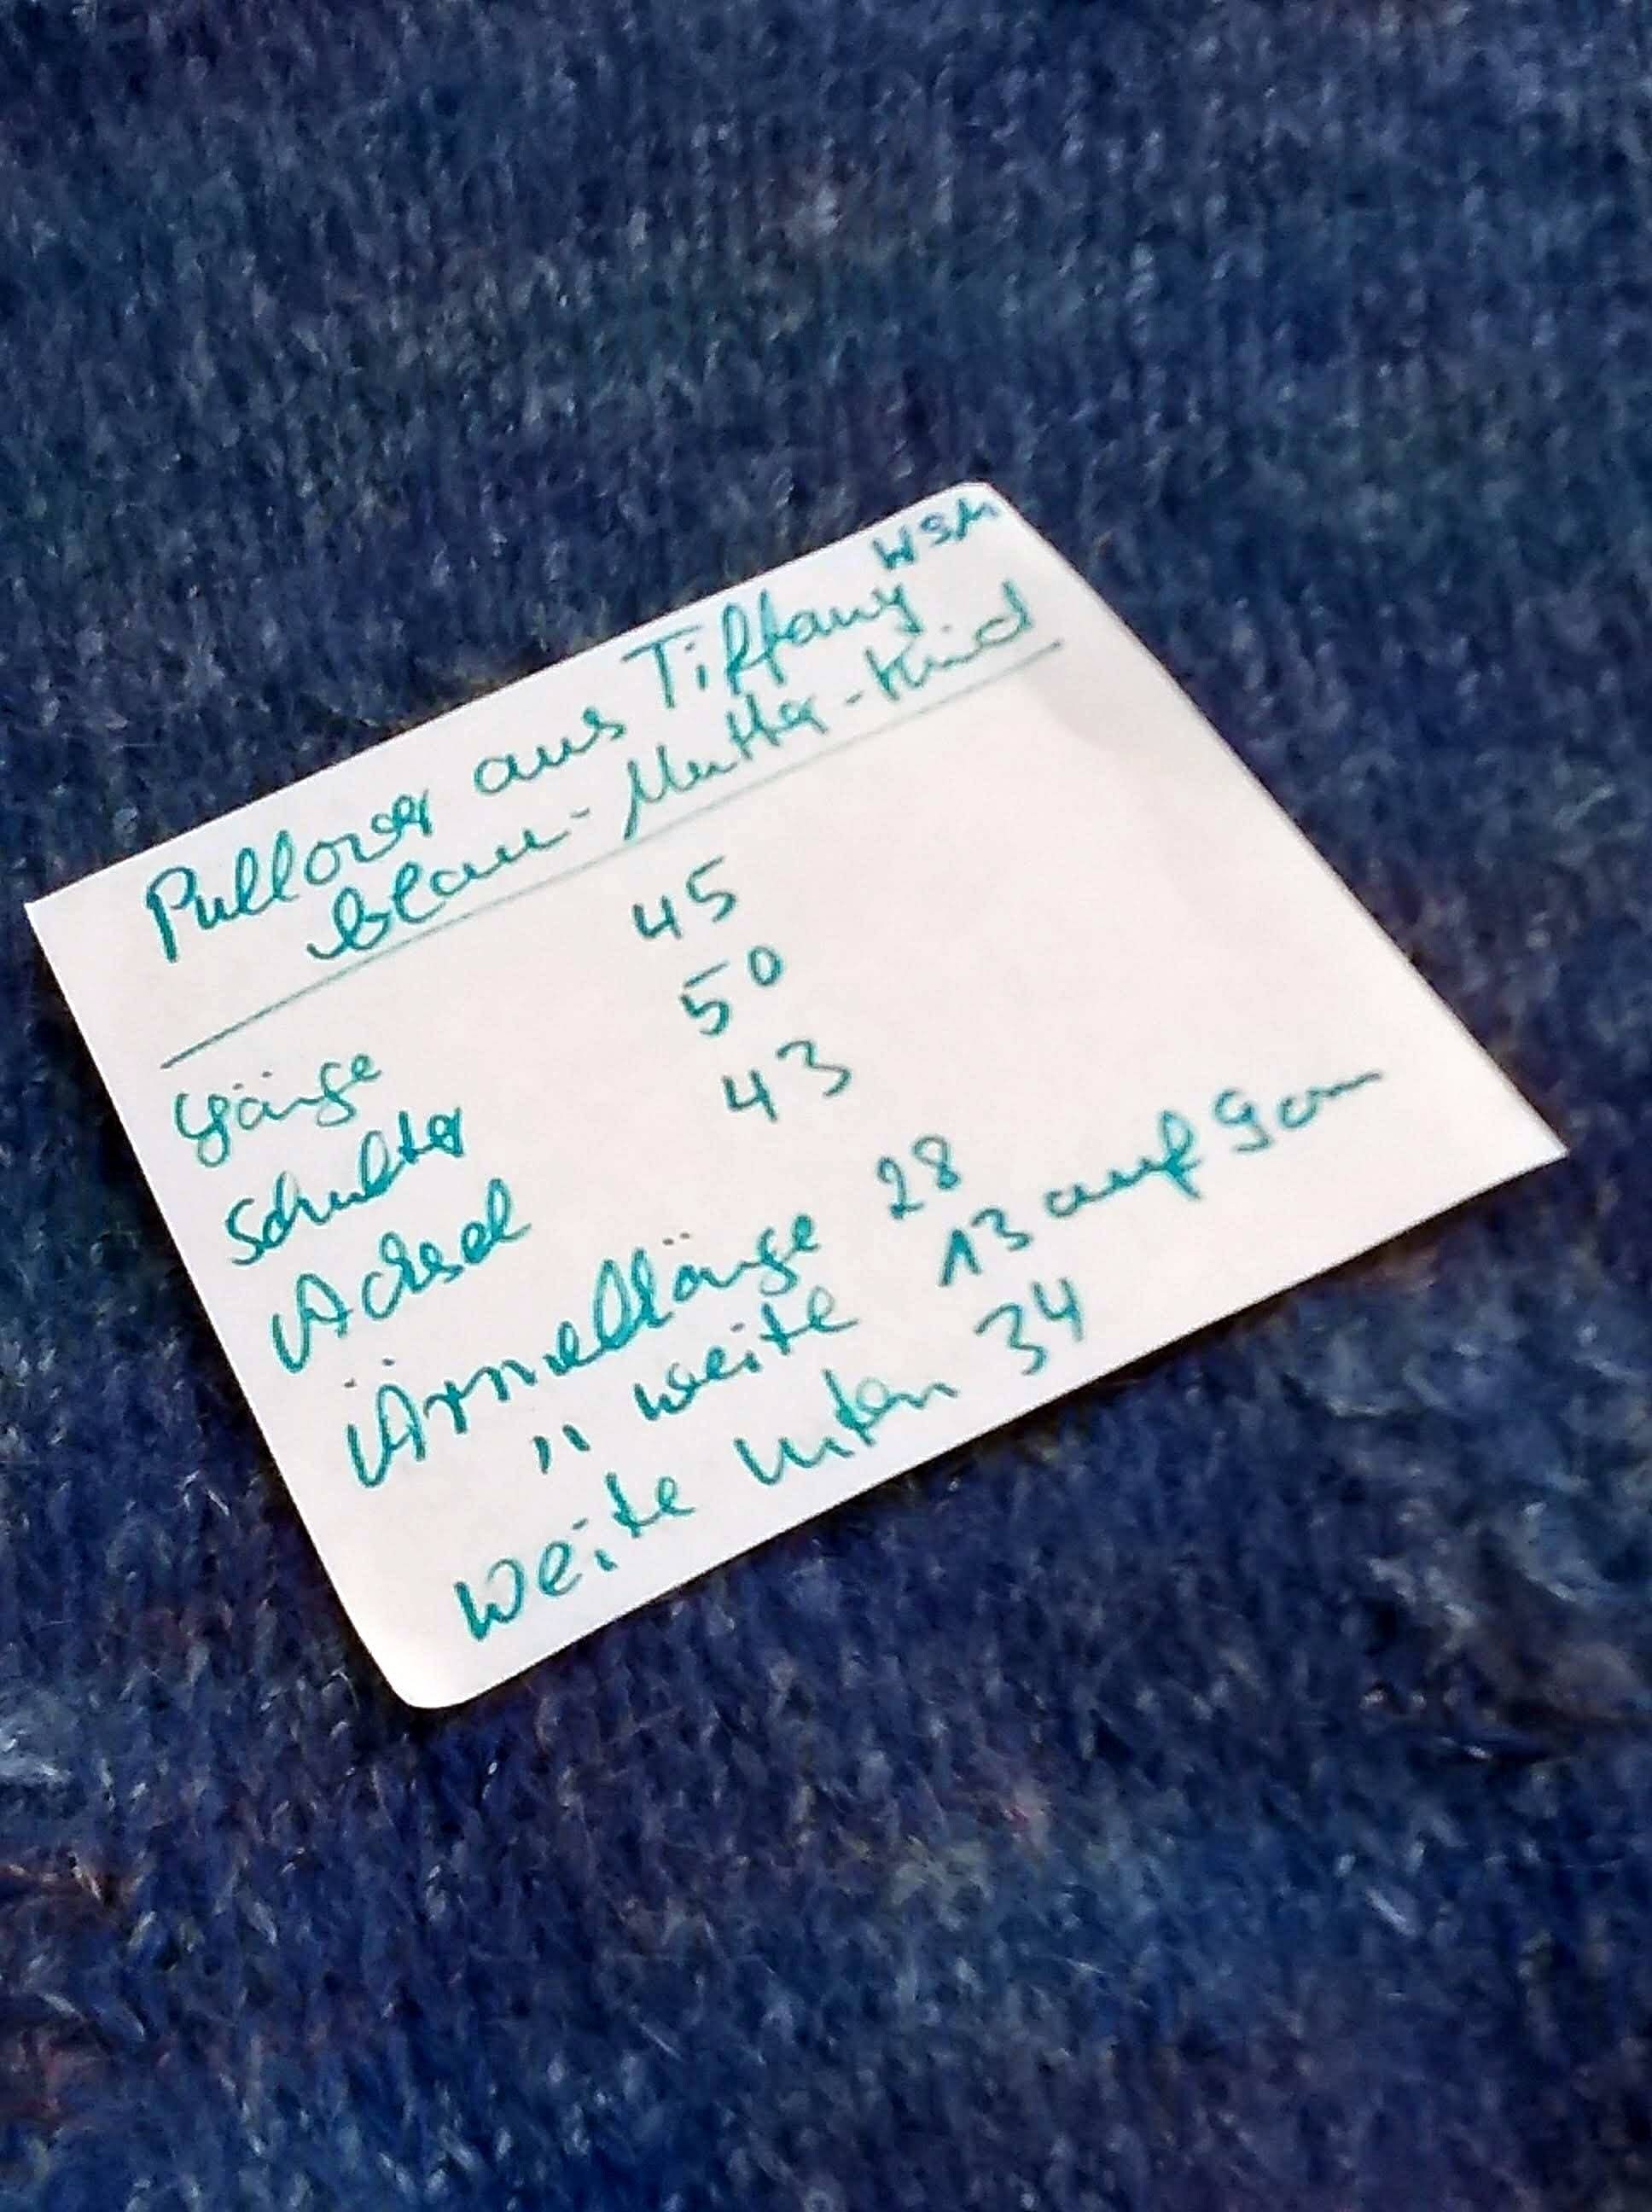 WSM
Pullover aus Tiffany
blau - Mutter - Kind
Länge 45
Schulter 50
Achsel 43
Ärmellänge 28
" weite 13 auf 9 cm
Weite unten 34